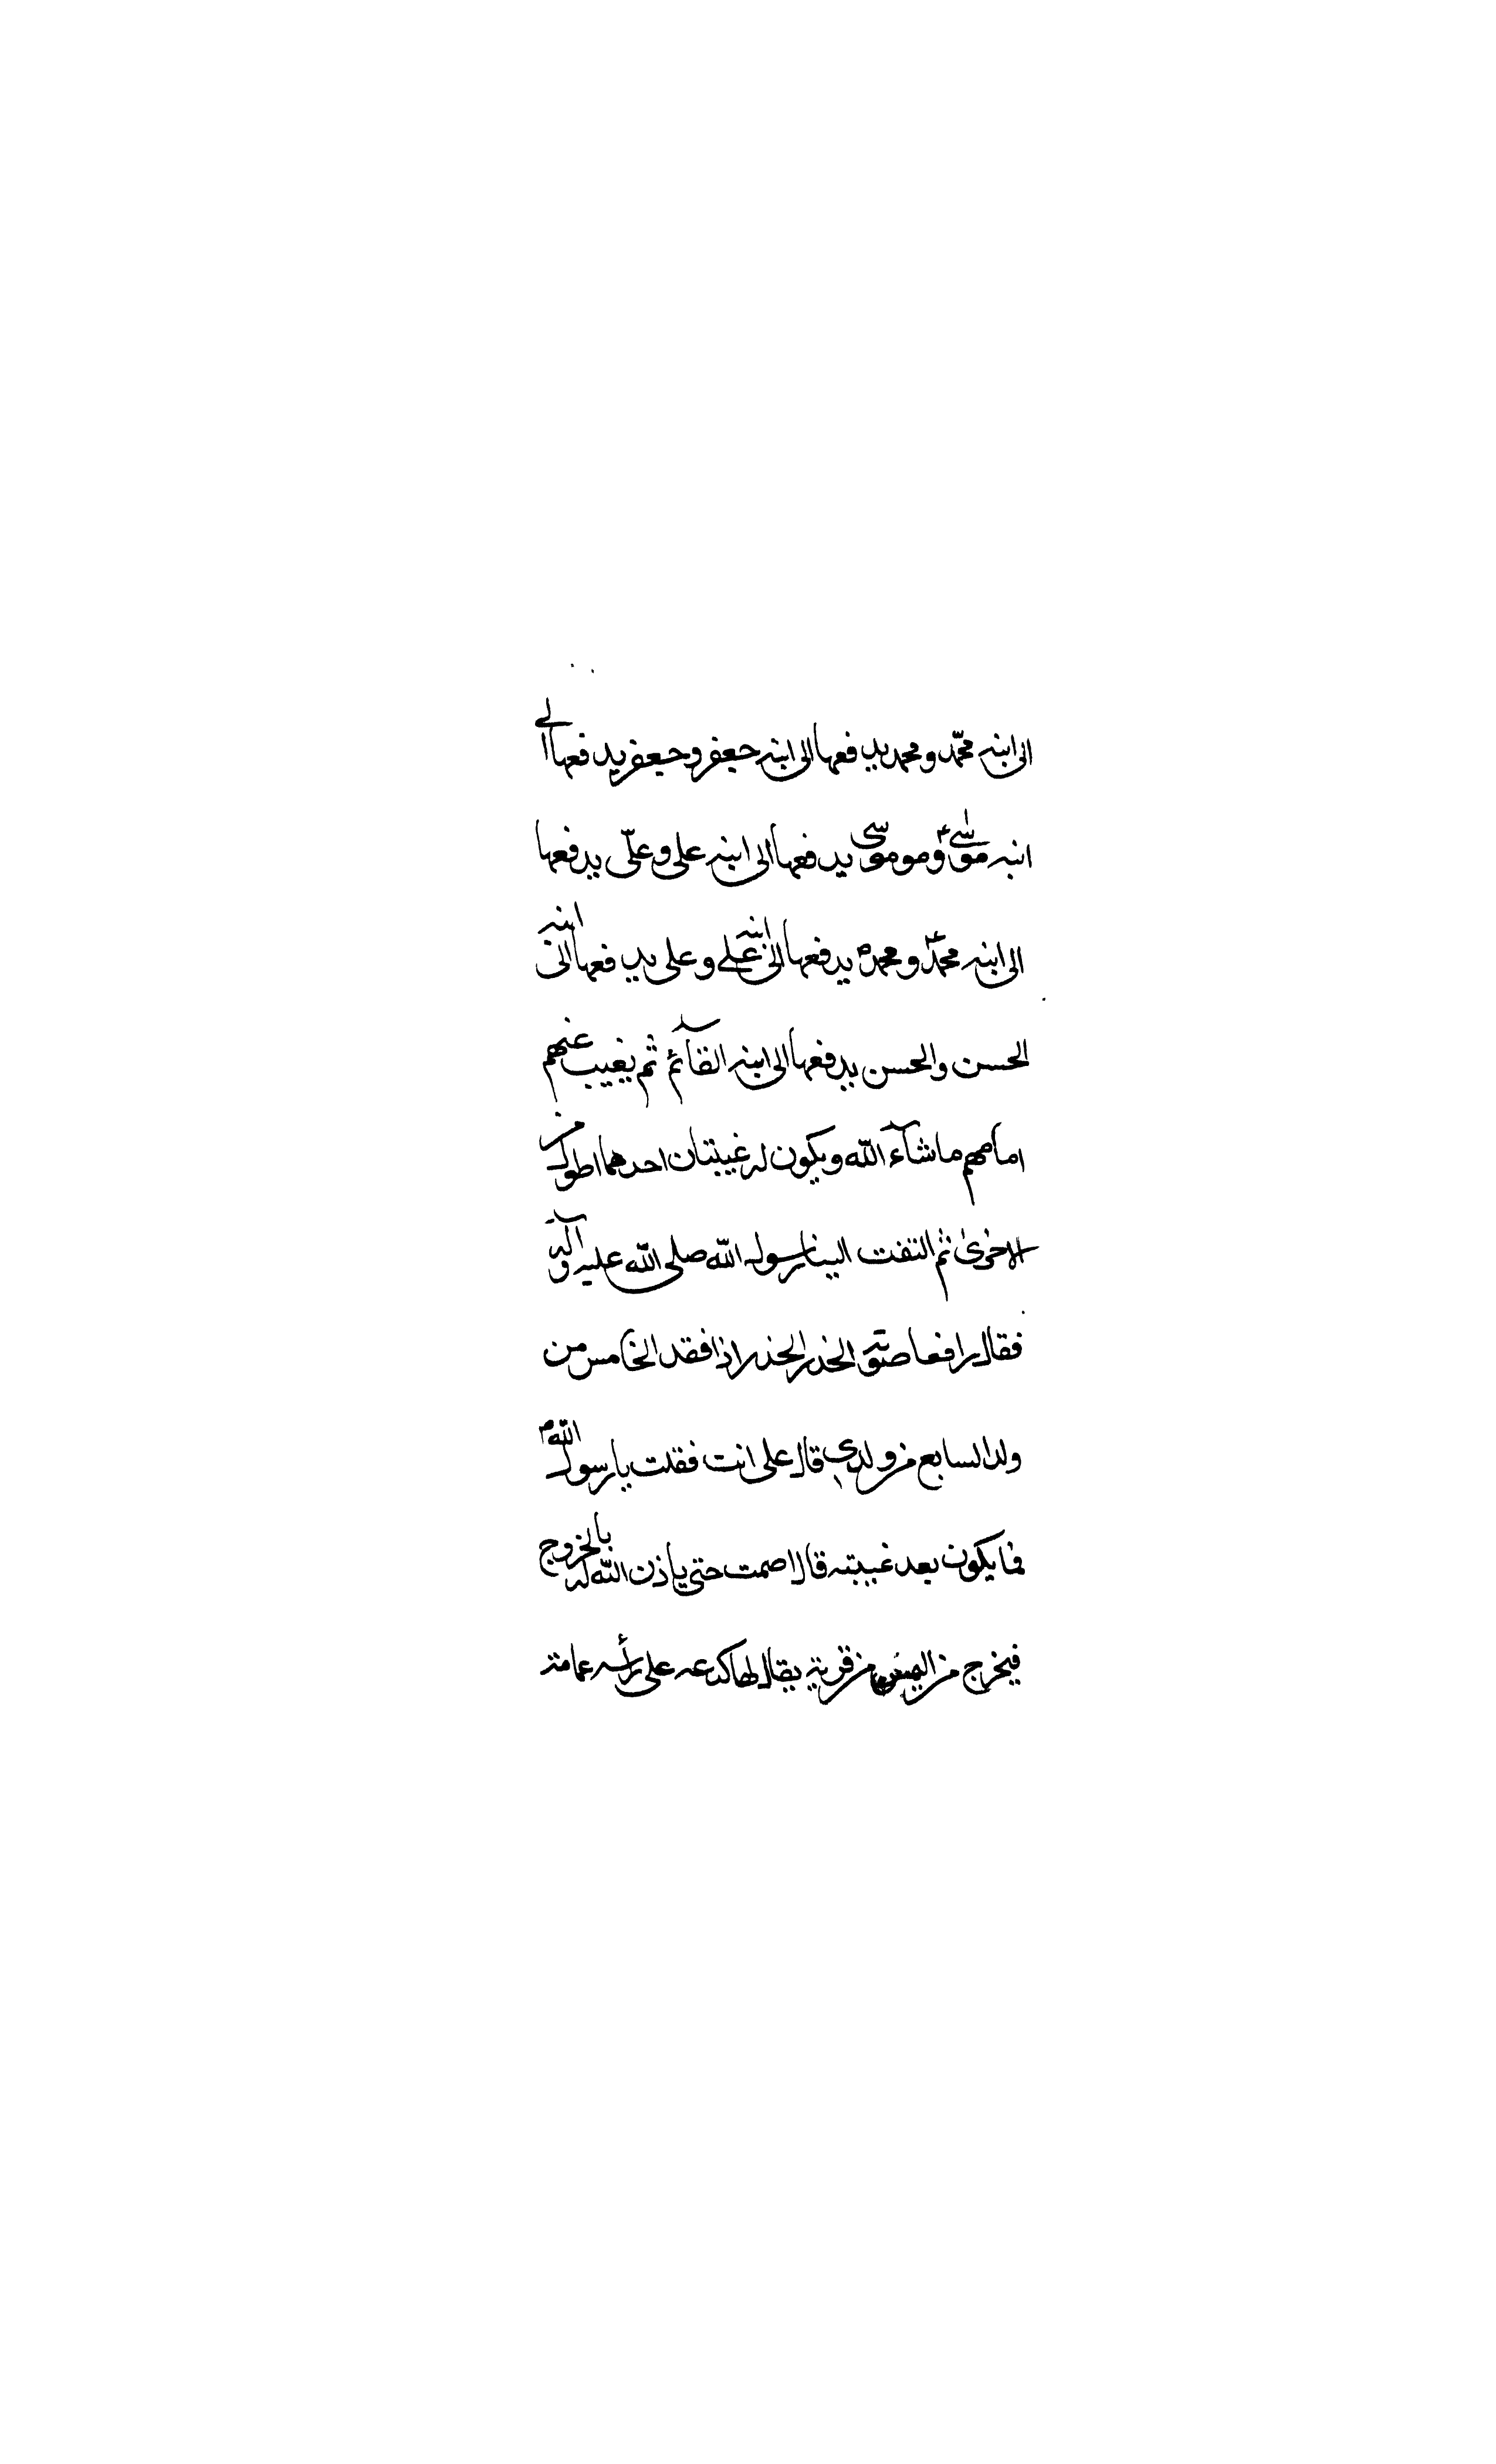 الى ابنه محمّد ومحمد يدفعها الى ابنه جعفر وجعفر يدفعها الى
ابنه موسىٰ وموموسى يدفعها الى ابنه علي وعليّ يدفعها
الى ابنه محمّد ومحمد يدفعها الى ابنه علي وعلى يدفعها الى ابنه
الحسن والحسن يدفعها الى ابنه القآئم ثم يغيب عنهم
امامهم ما شآء اللّه ويكون له غيبتان احدهما اطول من
الاخرىٰ ثم التفت الينا رسول اللّه صلى اللّه عليه وآله
فقال رافعا صوته الحذر الحذر اذا فقد الخامس من
ولد السابع من ولدي قال علي انت فقلت يا رسول اللّه
فما يكون بعد غيبته قال اصمت حتى ياذن اللّه له بالخروج
فيخرج من اليمن من قرية يقال لها كدعه على رأسه عمامته